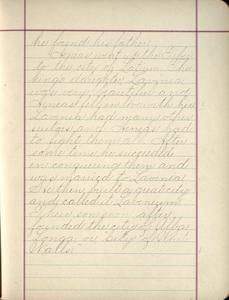 he found his father.
Aeneas went up the Tiber
to the city of Latium. The
king's daughter Lavinia
was very beautiful and
Aeneas fell in love with her
Lavinia had many other
suitors, and Aeneas had
to fight them all. After
some time he succeeded
in conquering them and
was married to Lavinia
He then built a great city
and called it Lavinium
his son soon after
founded the city of Alba
Longa or City of White
Walls